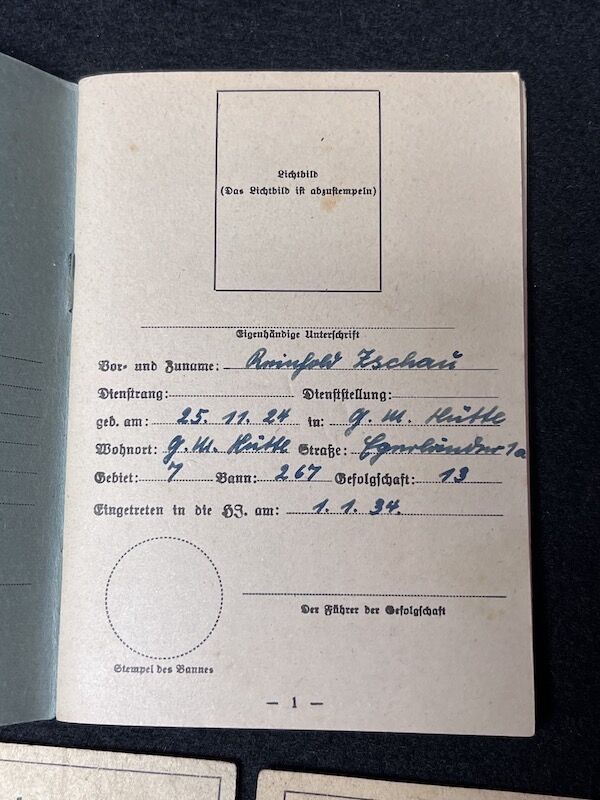 Lichtbild
(Das Lichtbild ist abzustempeln)
Eigenhändige Unterschrift
Vor- und Zuname: Reinhold Zschau
Dienstrang: Dienststellung:
geb. am: 25. 11. 24 in: G. M. Hütte
Wohnort: G. M. Hütte Straße: Egerländer 1a
Gebiet: 7 Bann: 267 Gefolgschaft: 13
Eingetreten in die HJ. am: 1. 1. 34.
Der Führer der Gefolgschaft
Stempel des Bannes
— 1 —